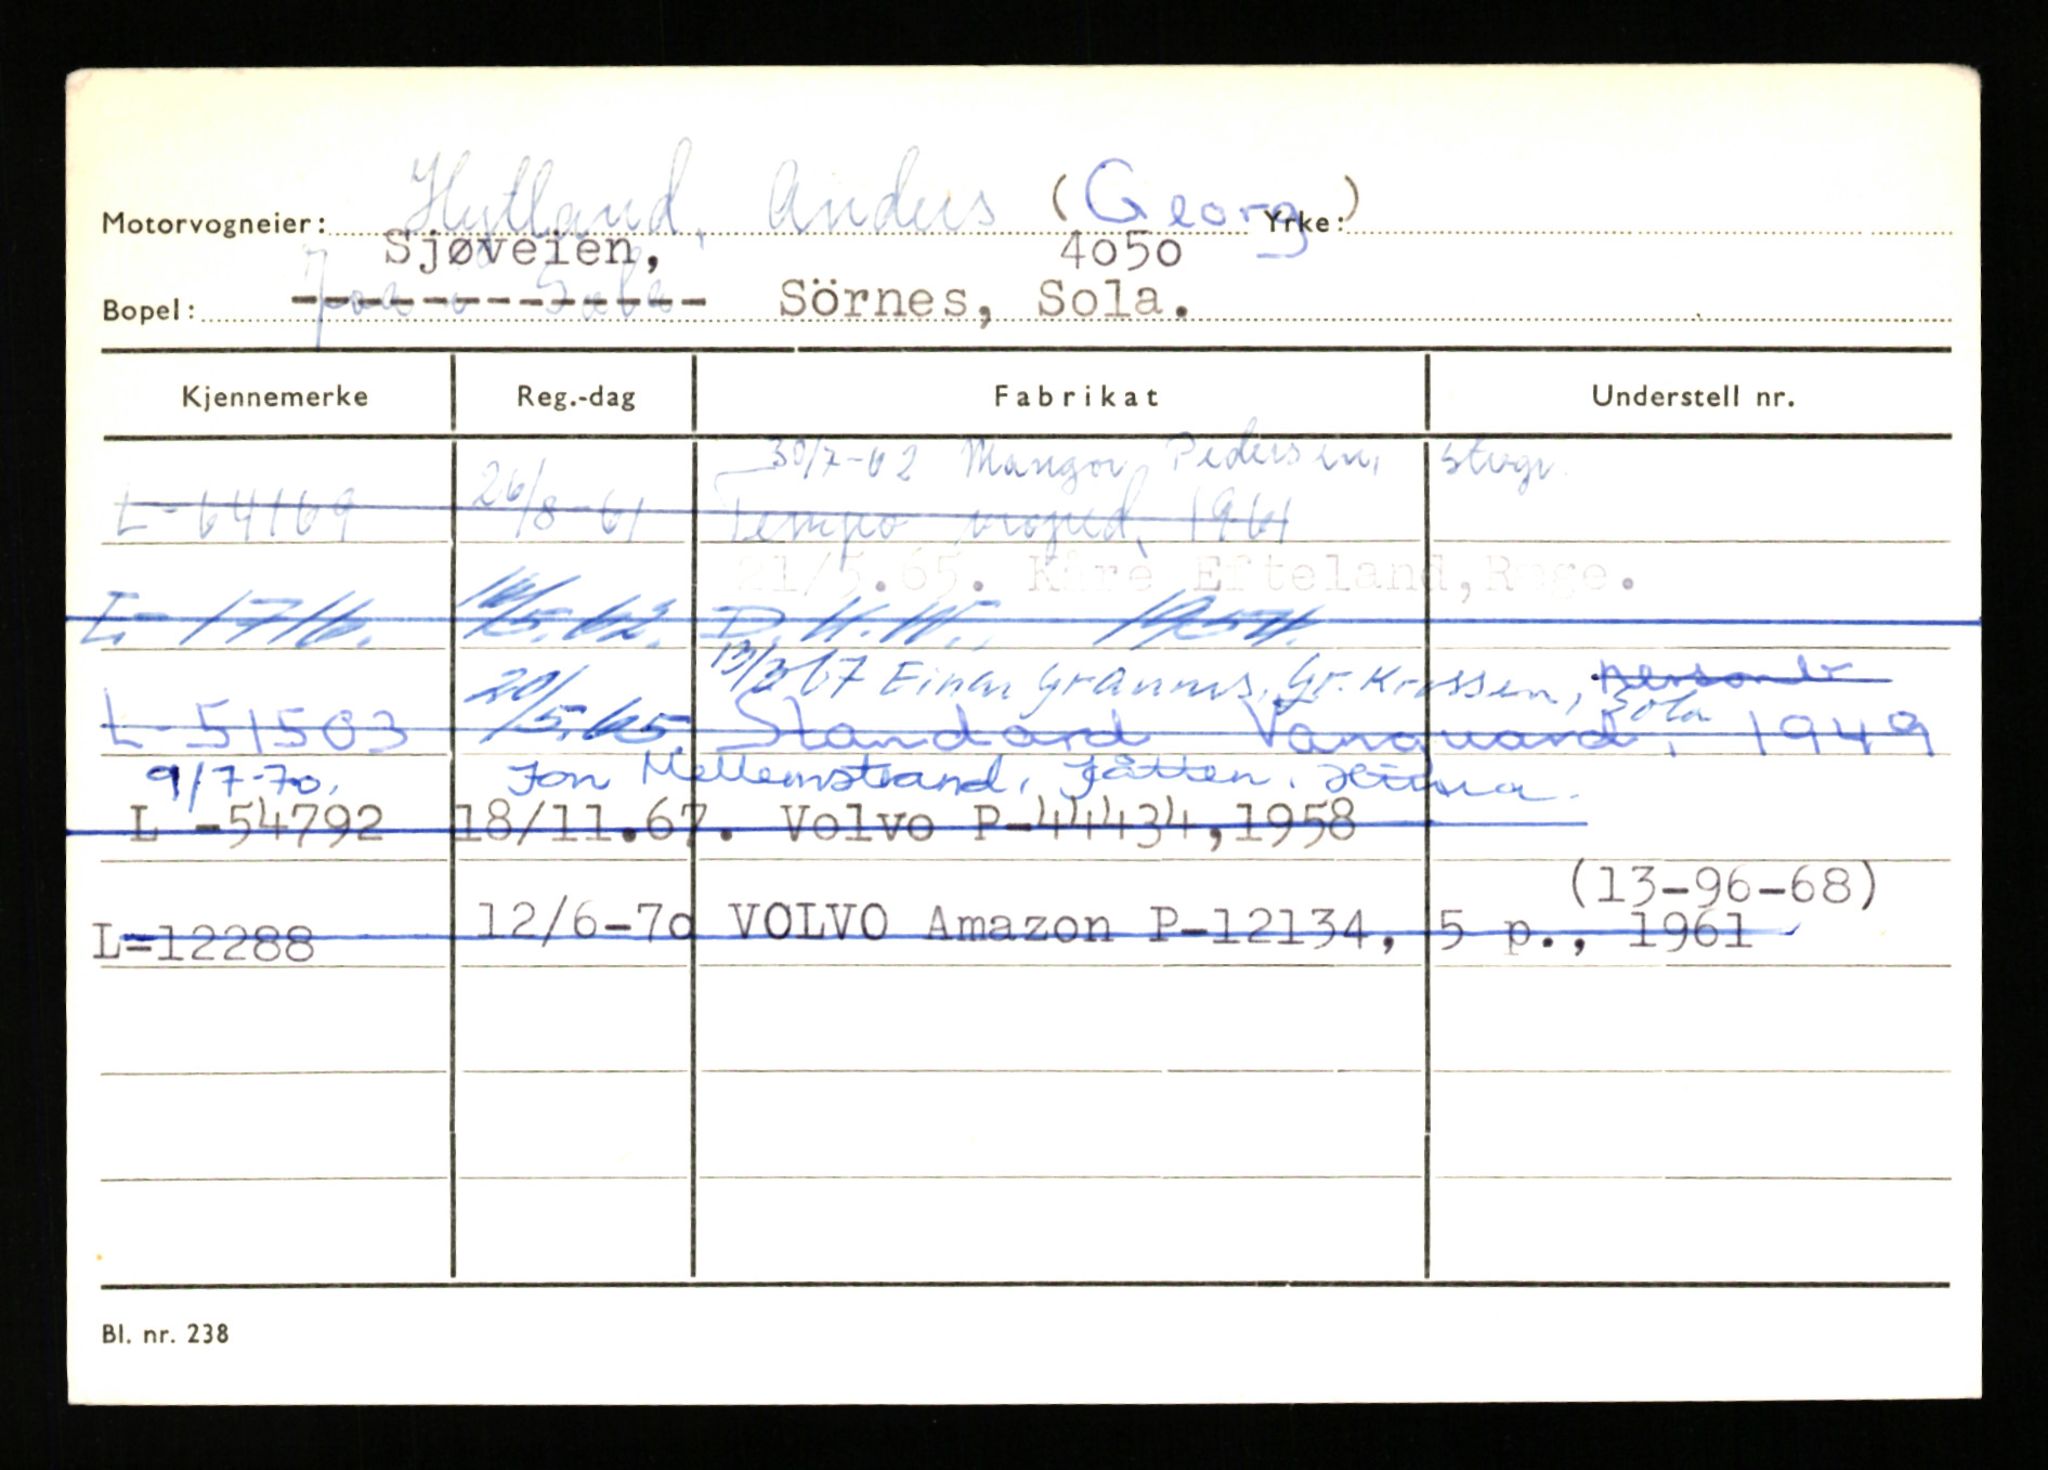 Motorvogneier: Hytland, Anders (Georg) Yrke:
Sjøveien, 4050
Bopel: Joa i Sola Sörnes, Sola.
Kjennemerke Reg.-dag Fabrikat Understell nr.
30/7-62 Mangor Pedersen, Stvgr.
L-64169 26/8-61 Tempo moped, 1961
21/5.65. Kåre Efteland, Rege.
L-1716. 10/5.62. D.K.W., 1954.
13/3 67 Einar Grannes, Gr. Krossen, Sola
L-51503 20/5.65 Standard Vanguard, 1949
9/7-70. Jon Mellemstrand, Jåtten,
L -54792 18/11.67. Volvo P-44434,1958
(13-96-68)
L-12288 12/6-70 VOLVO Amazon P-12134, 5 p., 1961
Bl. nr. 238